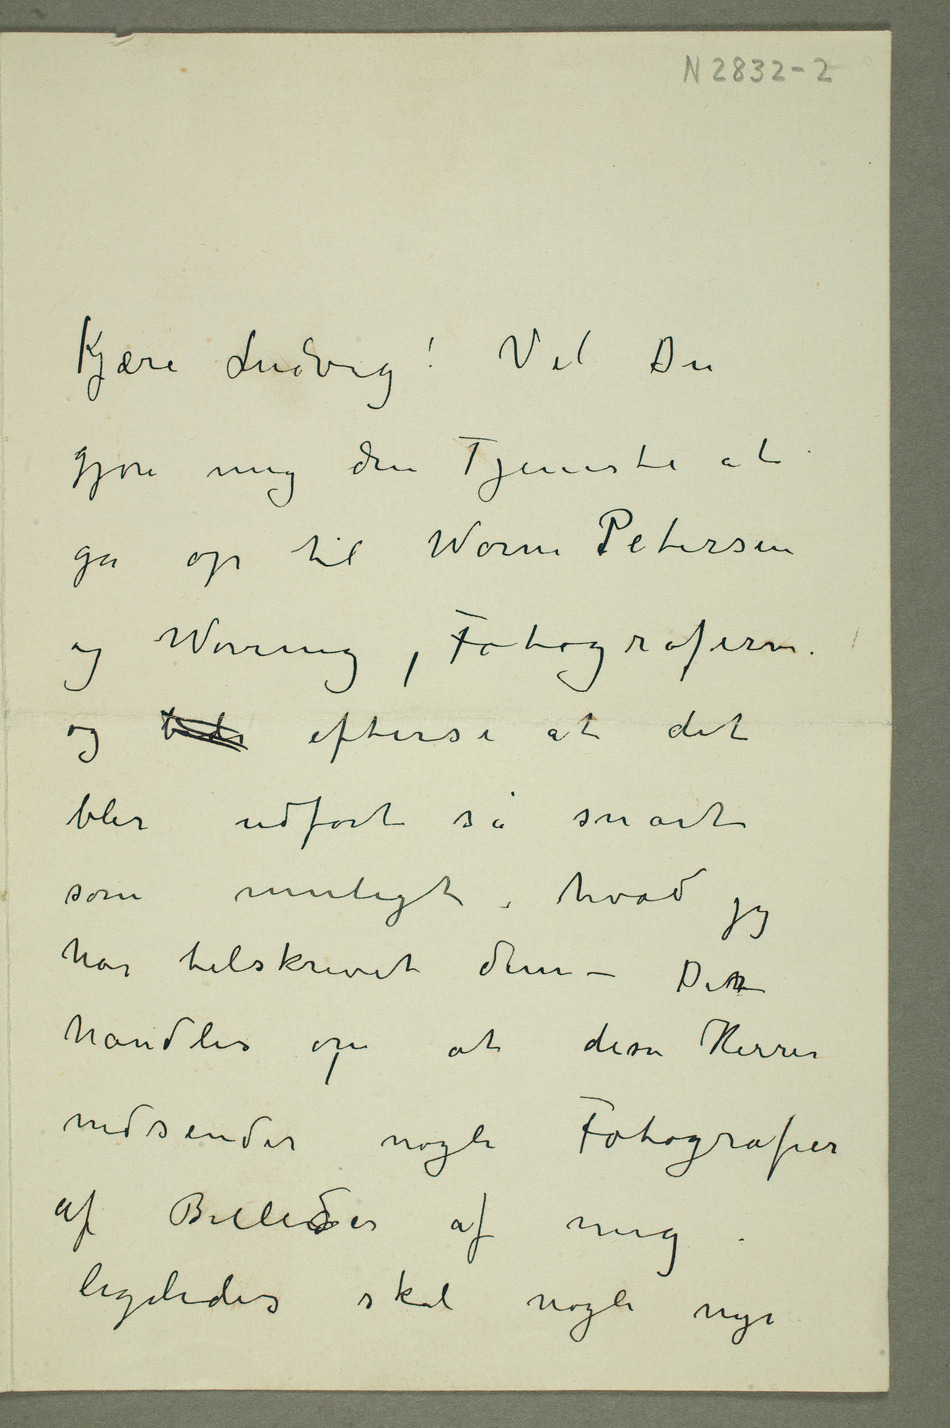 N 2832-2
Kjære Ludvig! Vil Du
gjøre mig den Tjeneste at
gå op til Worm Petersen
og Wæring, Fotografern.
og bede efterse at det
blir udført så snart
som muligt, hvad jeg
har tilskrevet dem – Det
handles om at disse Herrer
nedsender nogle Fotografier
af Billeder af mig.
ligeledes skal nogle nye